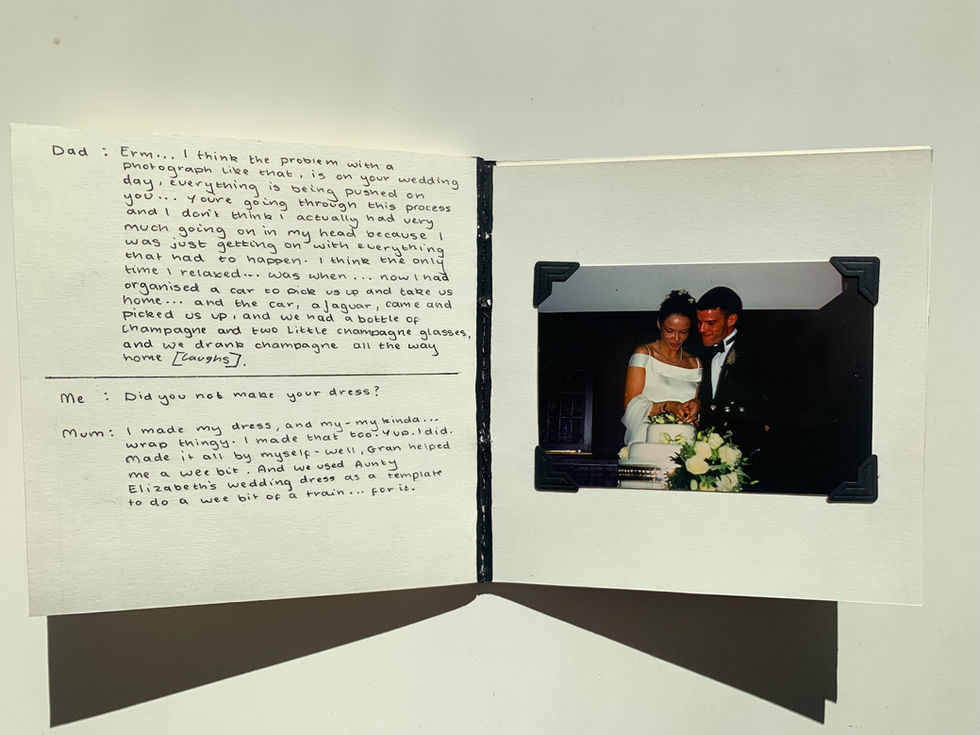 Dad : Erm... I think the problem with a
photograph like that, is on your wedding
day, everything is being pushed on
you... You're going through this process
and I don't think I actually had very
much going on in my head because I
was just getting on with everything
that had to happen. I think the only
time I relaxed... was when ... now I had
organised a car to pick us up and take us
home... and the car, a Jaguar, came and
picked us up, and we had a bottle of
Champagne and two little champagne glasses,
and we drank champagne all the way
home [Laughs].
Me : Did you not make your dress?
Mum: I made my dress, and my-my kinda...
wrap thingy. I made that too. Yup. I did.
Made it all by myself - well, Gran helped
me a wee bit. And we used Aunty
Elizabeth's wedding dress as a template
to do a wee bit of a train... for it.